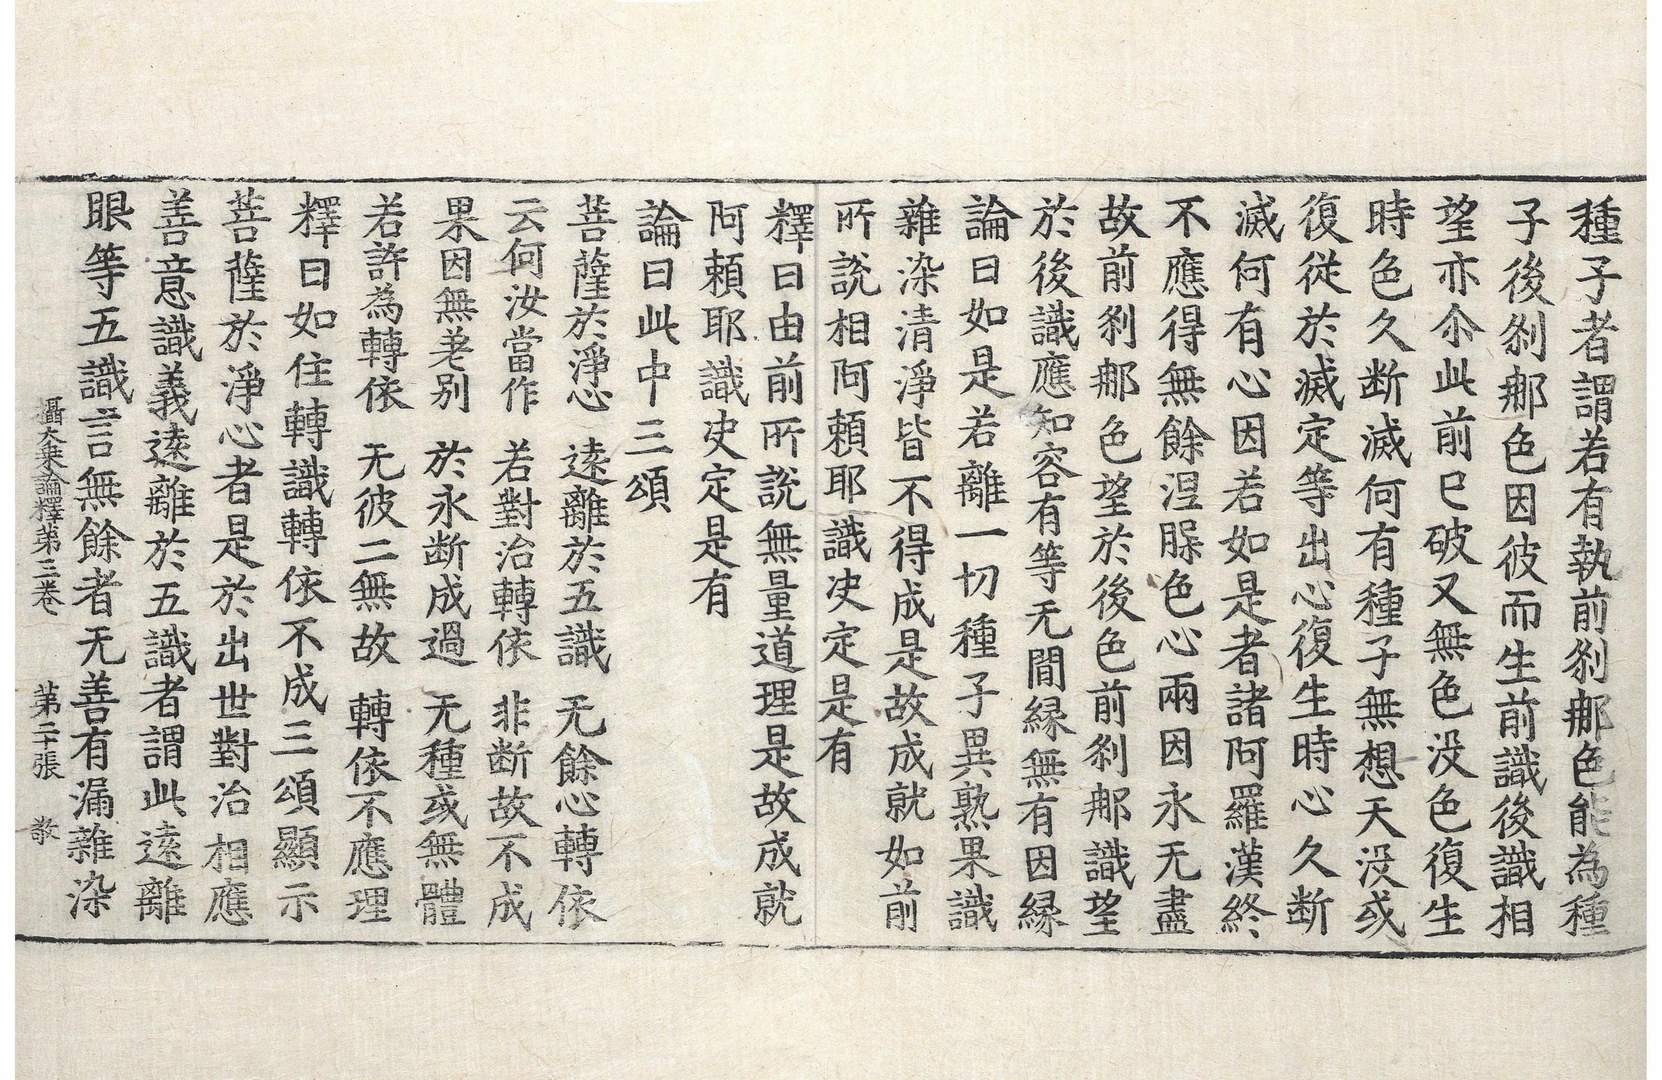 種子者謂若有執前刹那色能為種
子後刹那色因彼而生前識後識相
望亦尒此前已破又無色没色復生
時色久断滅何有種子無想天没或
復從於滅定等出心復生時心久断
滅何有心因若如是者諸阿羅漢終
不應得無餘涅槃色心兩因永无盡
故前刹那色望於後色前刹那識望
於後識應知容有等无間縁無有因縁
論曰如是若離一切種子異熟果識
雜染清淨皆不得成是故成就如前
所說相阿賴耶識决定是有
釋曰由前所説無量道理是故成就
阿賴耶識决定是有
論曰此中三頌
菩薩於淨心　遠離於五識　无餘心轉依
云何汝當作　若對治轉依　非断故不成
果因無差别　於永断成過　无種或無體
若許為轉依　无彼二無故　轉依不應理
釋曰如住轉識轉依不成三頌顯示
菩薩於淨心者是於出世對治相應
善意識義遠離於五識者謂此遠離
眼等五識言無餘者无善有漏雜染
攝大乗論釋第三卷　第二十張　敬